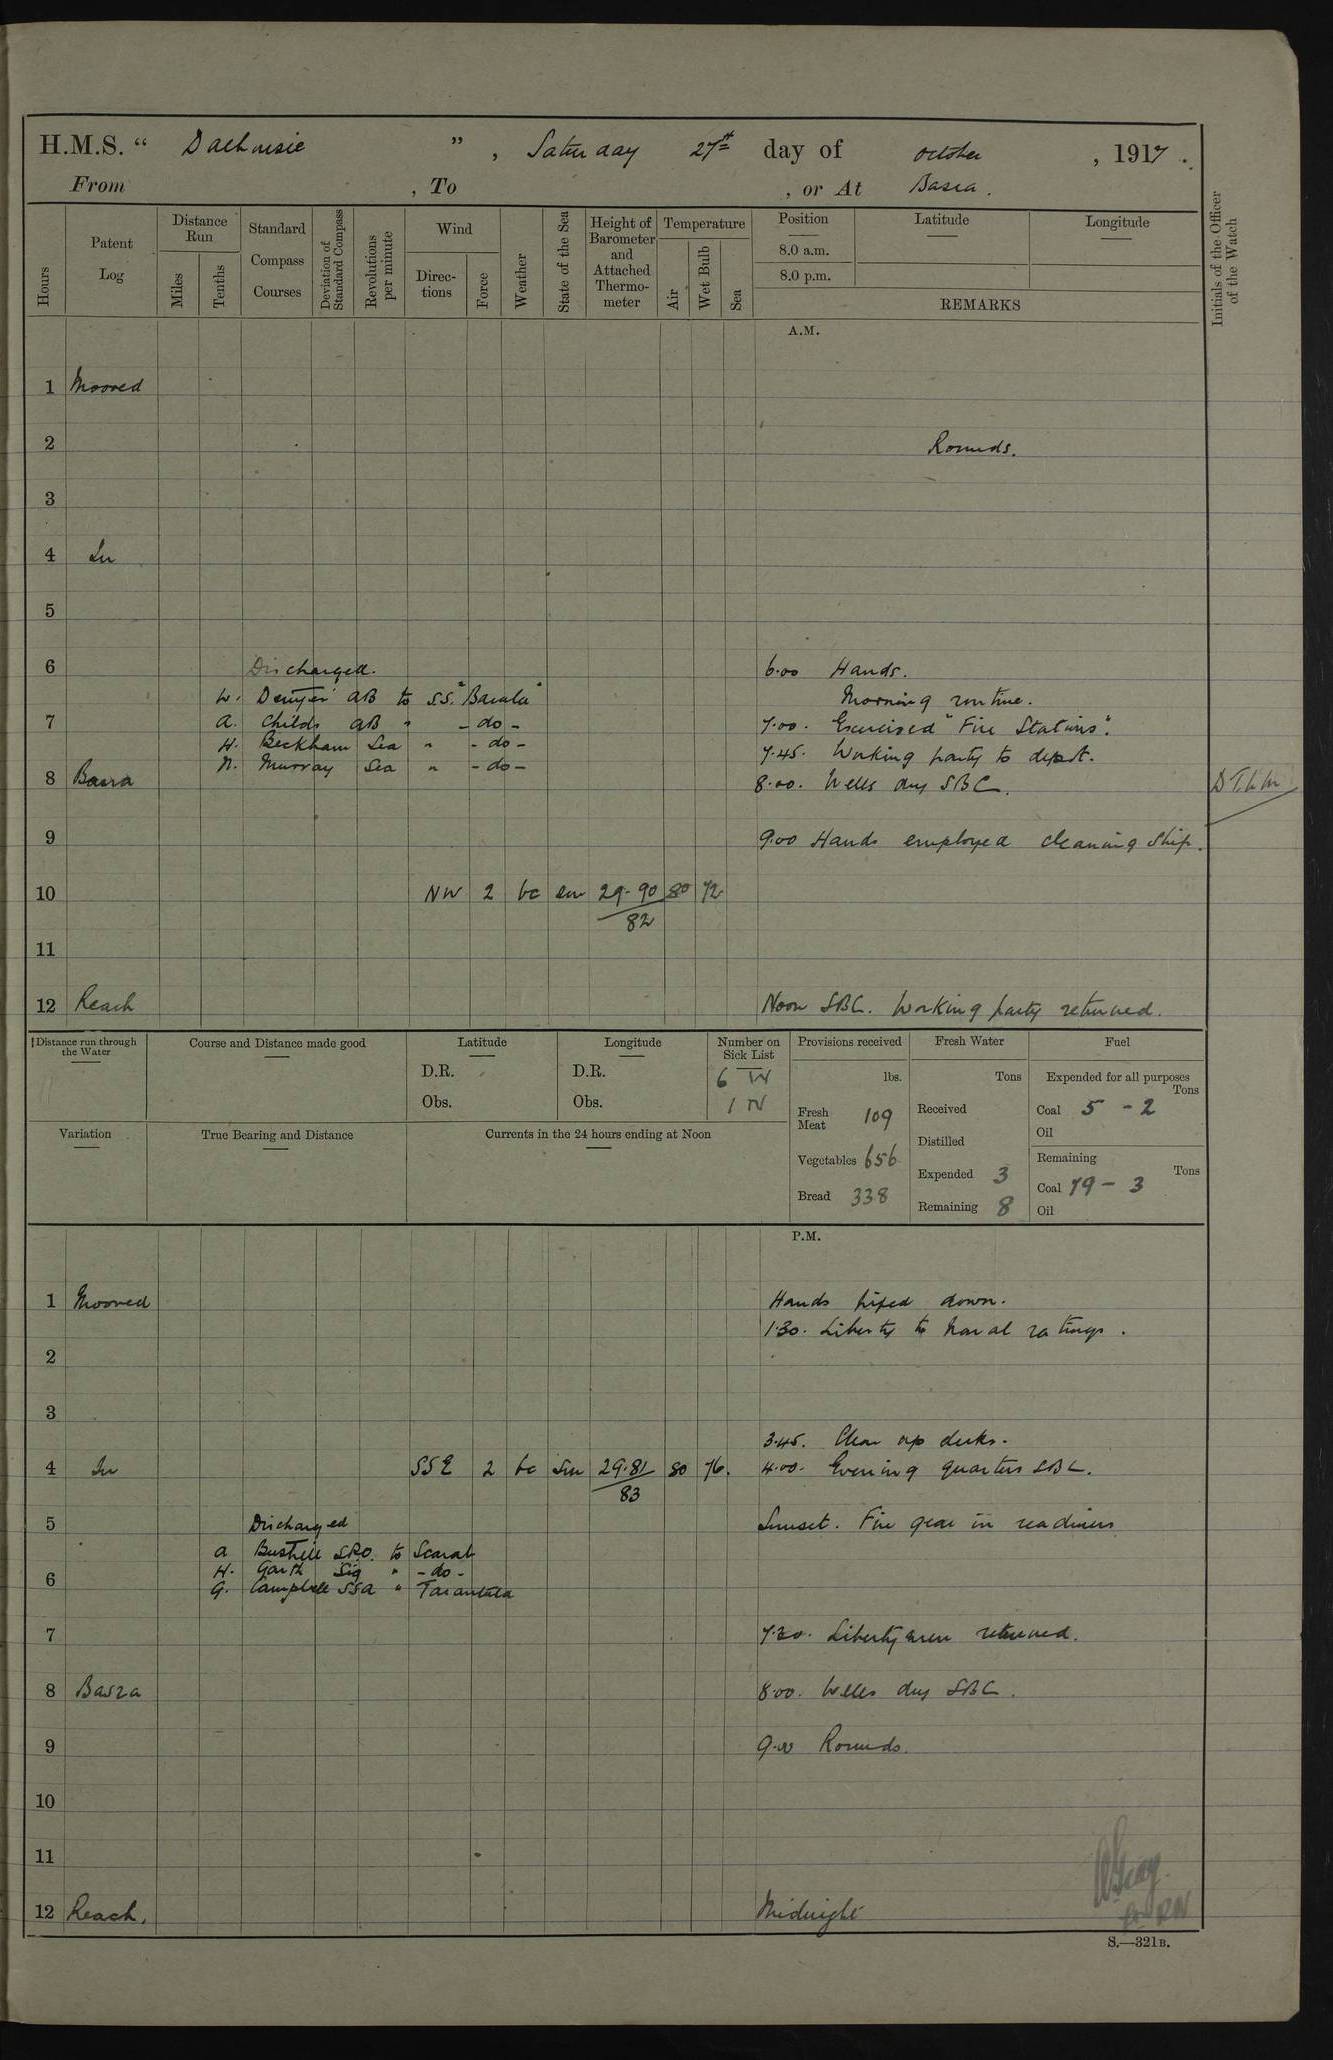 H.M.S. “ Dalhousie ”, Saturday 27th day of October, 1917.
From , To , or At Basra.
Hours
Patent Log
Distance Run
Miles
Tenths
Standard Compass Courses
Deviation of Standard Compass
Revolutions per minute
Wind
Directions
Force
Weather
State of the Sea
Height of Barometer and Attached Thermometer
Temperature
Air
Wet Bulb
Sea
Position
8.0 a.m.
8.0 p.m.
Latitude
Longitude
REMARKS
Initials of the Officer of the Watch
A.M.
1 Moored
2 Rounds.
3
4 In
5
6 Discharged. 6.00 Hands.
W. Denyer AB to S.S. "Barala" Morning routine.
7 A. Childs AB " - do - 7.00. Exercised "Fire Stations".
H. Beckham Sea " - do - 7.45. Working party to depot.
N. Murray Sea " - do -
8 Basra 8.00. Wells dry SBC.
9 9.00 Hands employed cleaning ship.
10 NW 2 bc sm 29.90 80 72
82
11
12 Reach Noon SBC. Working party returned.
Distance run through the Water
Course and Distance made good
Latitude
D.R.
Obs.
Longitude
D.R.
Obs.
Number on Sick List
6 W
1 N
Provisions received
lbs.
Fresh Meat 109
Vegetables 656
Bread 338
Fresh Water
Tons
Received
Distilled
Expended 3
Remaining 8
Fuel
Expended for all purposes
Tons
Coal 5 - 2
Oil
Remaining
Tons
Coal 79 - 3
Oil
Variation
True Bearing and Distance
Currents in the 24 hours ending at Noon
P.M.
1 Moored Hands piped down.
1.30. Liberty to Naval ratings.
2
3
3.45. Clear up decks.
4 In SSE 2 bc Sm 29.81 80 76. 4.00. Evening quarters SBC.
83
5 Discharged Sunset. Fire gear in readiness
A Bushell SPO. to Scarab
H. Garth Sig " - do -
6
G. Campbell SSA " Tarantula
7 7.30. Libertymen returned.
8 Basra 8.00. Wells dry SBC.
9 9.00 Rounds.
10
11
12 Reach. Midnight
RN
S.—321B.